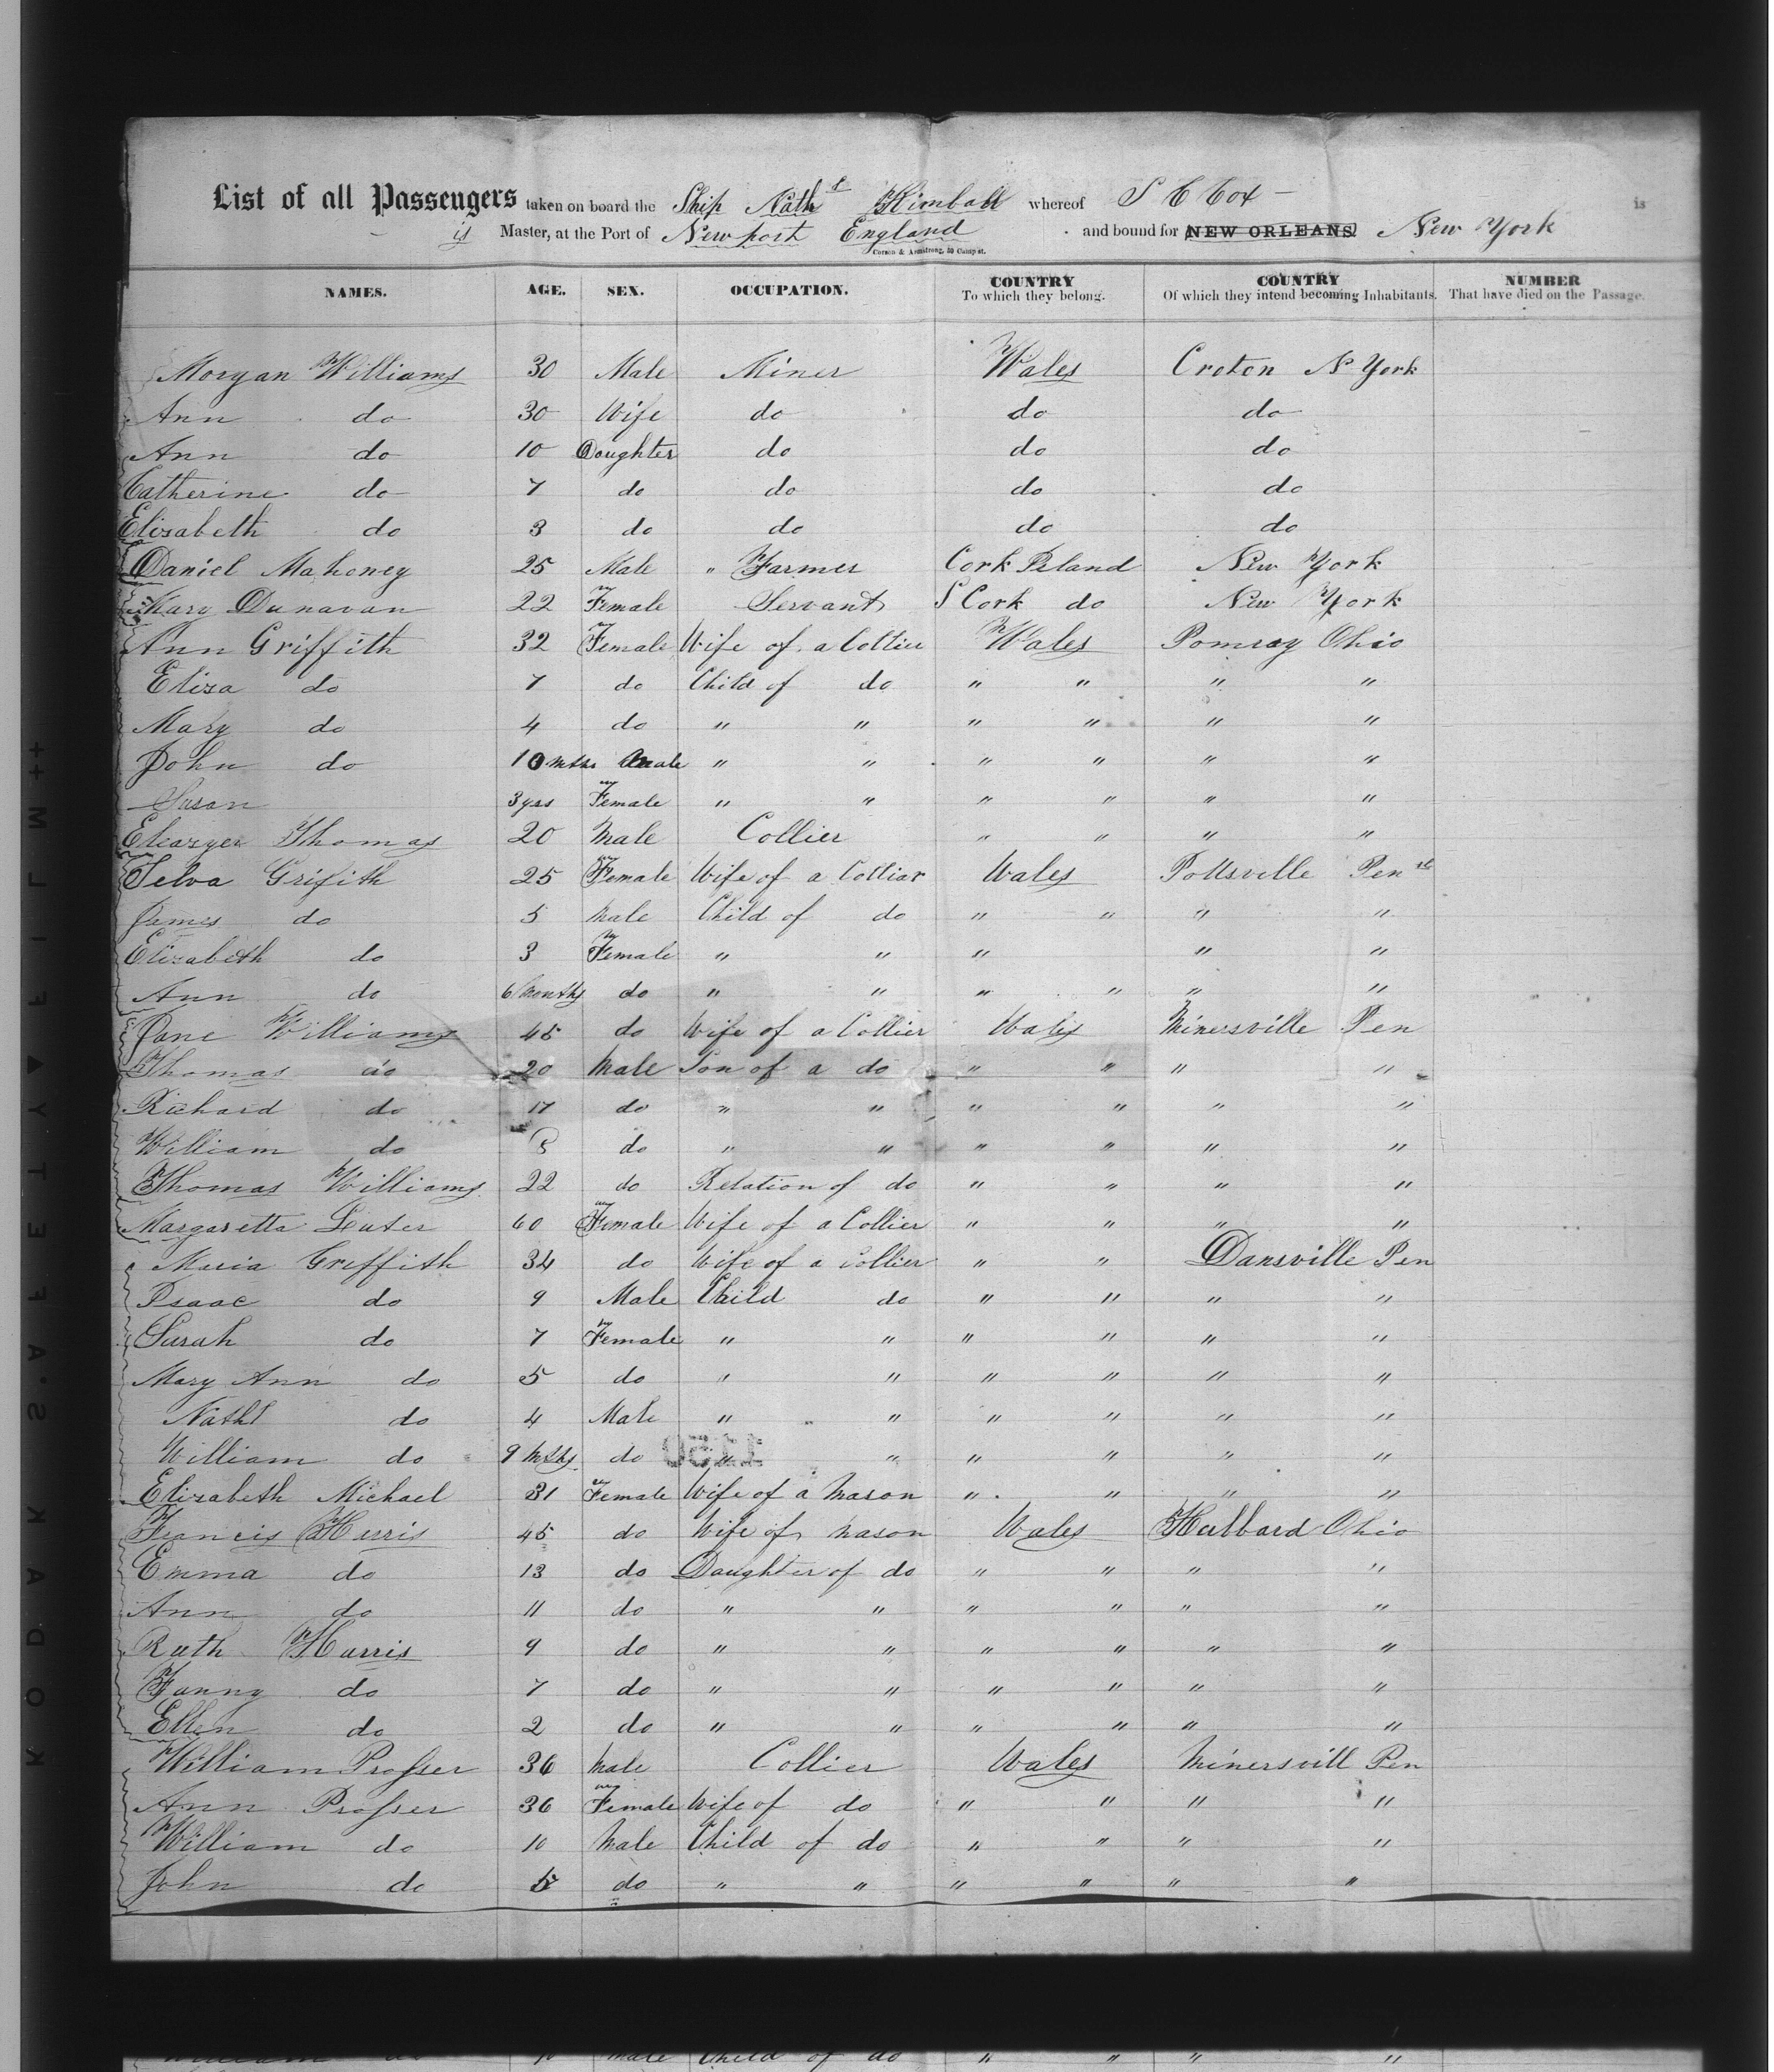 List of all Passengers taken on board the Ship Nathl Kimball whereof S C Cox is
is Master, at the Port of Newport England and bound for NEW ORLEANS New York
Corson & Armstrong, 59 Camp st.
NAMES. AGE. SEX. OCCUPATION. COUNTRY To which they belong. COUNTRY Of which they intend becoming Inhabitants. NUMBER That have died on the Passage.
Morgan Williams 30 Male Miner Wales Croton N York
Ann do 30 Wife do do do
Ann do 10 Doughter do do do
Catherine do 7 do do do do
Elisabeth do 3 do do do do
Daniel Mahoney 25 Male " Farmer Cork Ireland New York
Mary Dunavan 22 Female Servant Cork do New York
Ann Griffith 32 Female Wife of a Collier Wales Pomroy Ohio
Eliza do 7 do Child of do " " " "
Mary do 4 do " " " " " "
John do 10 mths male " " " " " "
Susan 3 yrs Female " " " " " "
Thomas 20 Male Collier " " " "
Selva Grifith 25 Female Wife of a Colliar Wales Pottsville Pen
James do 5 Male Child of do " " " "
Elizabeth do 3 Female " " " " "
Ann do 6 Months do " " " " " "
Jane Williams 45 do Wife of a Collier Wales Minersville Pen
Thomas do 20 Male Son of a do " " " "
Richard do 17 do " " " " " "
William do do " " " " " "
Thomas Williams 22 do Relation of do " " " "
Margaretta 60 Female Wife of a Collier " " " "
Maria Griffith 34 do Wife of a Collier " " Dansville Pen
Isaac do 9 Male Child do " " " "
Sarah do 7 Female " " " " " "
Mary Ann do 5 do " " " " " "
Nathl do 4 Male " " " " " "
William do 9 Mths do " " " " " "
1150
Elizabeth Michael 31 Female Wife of a Mason " " " "
Francis Harris 45 do Wife of Mason Wales Hubbard Ohio
Emma do 13 do Daughter of do " " " "
Ann do 11 do " " " " " "
Ruth Harris 9 do " " " " " "
Fanny do 7 do " " " " " "
Ellen do 2 do " " " " " "
William Prosser 36 Male Collier Wales Minersvill Pen
Ann Prosser 36 Female Wife of do " " " "
William do 10 Male Child of do " " " "
John do 5 do " " " " " "
KODAK SAFETY FILM